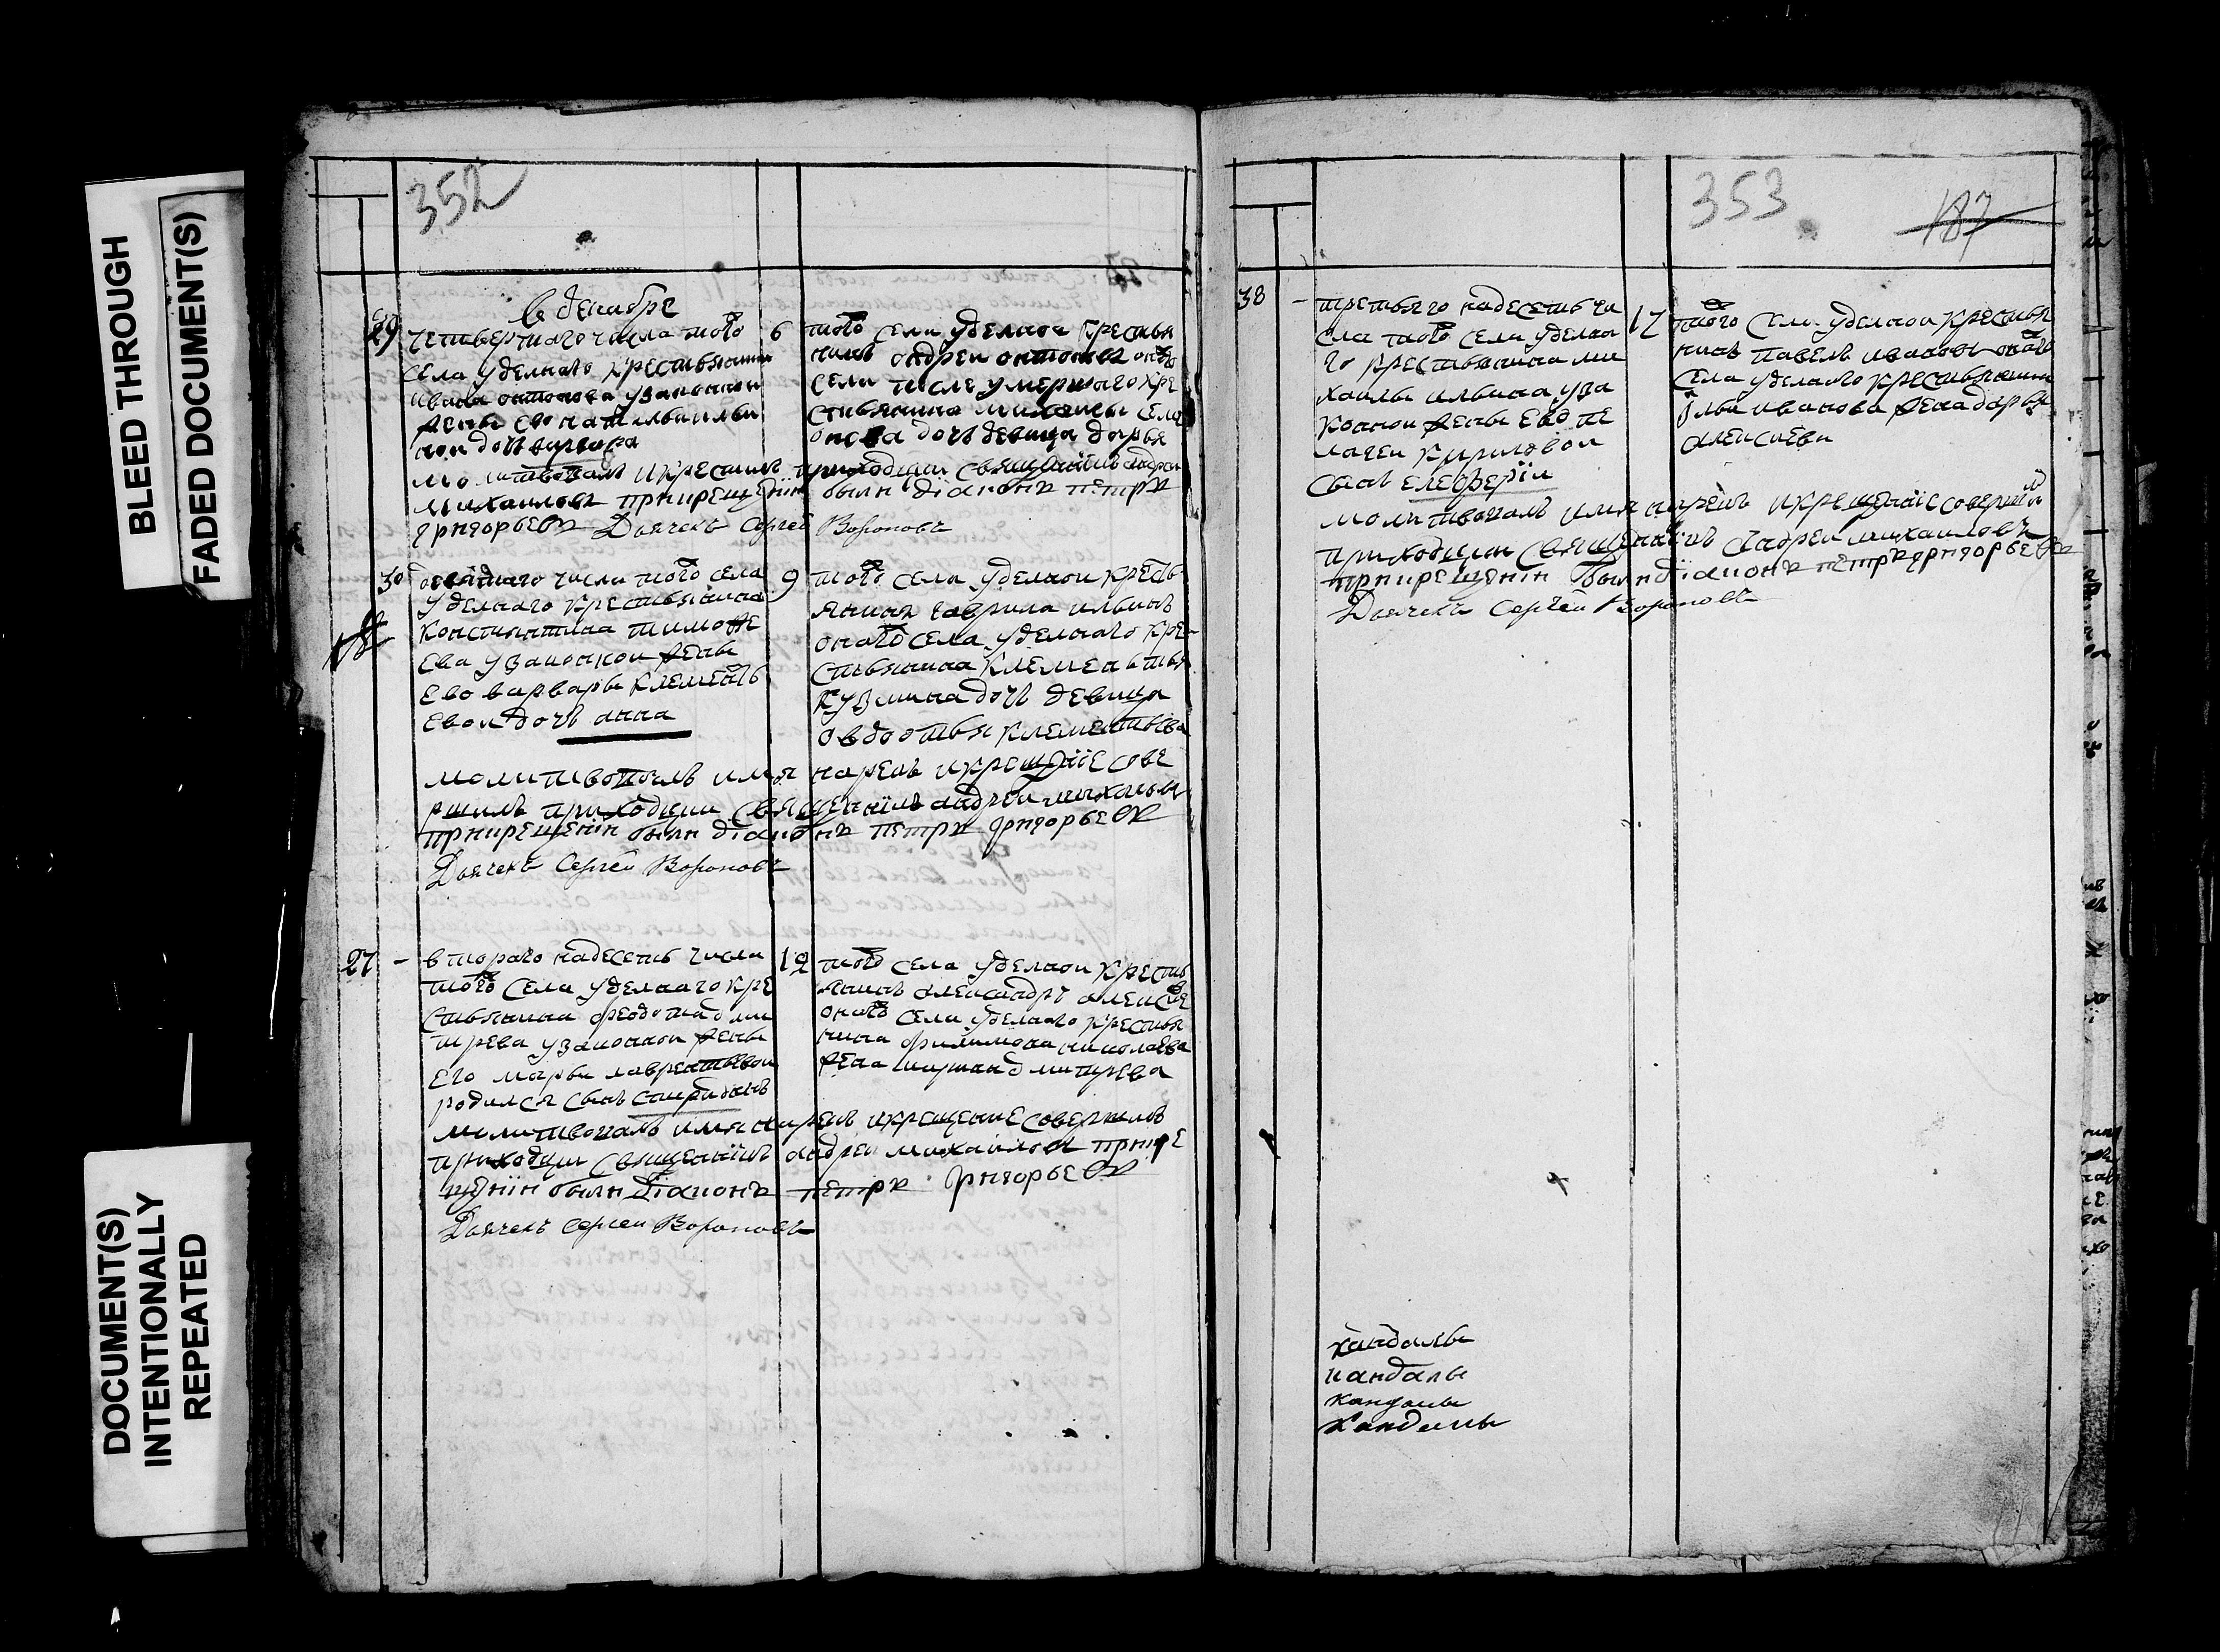 BLEED THROUGH
FADED DOCUMENT(S)
DOCUMENT(S)
INTENTIONALLY
REPEATED
352
в декабре
29
четвертаго числа того
села уделнаго крестьянина
ивана онтонова узаконнои
жены ево натальи ильи
нои дочь варвара
6
того села уделнои крестья
нинъ андреи онтоновъ онаго
села после умершаго кре
стьянина михаилы семе
онова дочь девица дарья
молитвовалъ и крестилъ приходции священникъ андреи
михаиловъ прикрещенiи были дiаконъ петръ
григорьевъ Дьячекъ Сергей Вороновъ
30
девятаго числа того села
уделнаго крестьянина
константина тимофе
ева узаконнои жены
ево варвары клементь
евои дочь анна
9
того села уделнои кресть
янинъ гаврила ильинъ
онаго села уделнаго кре
стьянина клементья
кузмина дочь девица
овдотья клементьева
молитвовалъ имя нарекъ икрещенiе сове
ршилъ приходции священникъ андреи михаиловъ
прикрещенiи были дiаконъ петръ григорьевъ
Дьячекъ Сергей Вороновъ
27 -
втораго надесеть числа
того села уделнаго кре
стьянина феодота дми
трева узаконнои жены
его марьи лаврентьевои
родился сынъ спиридонъ
12
того села уделнои кресть
янинъ александръ алексее
онаго села уделнаго крестья
нина филимона николаева
жена дмитрева
молитвовалъ имя нарекъ икрещение совершилъ
приходции священникъ андреи михаиловъ прикре
щенiи были дiаконъ петръ григорьевъ
Дьячекъ Сергеи Вороновъ
353
187
38 -
третьяго надесеть чи
сла того села уделна
го крестьянина ми
хаилы ильина уза
коннои жены евдо
кириловои
сынъ елефериi
17
того села уделнои крестья
нинъ павелъ ивановъ онаго
села уделнаго крестьянина
ильи иванова жена дарья
алексиева
молитвовалъ имя нарекъ икрещенiе совершилъ
приходции священникъ андреи михаиловъ
прикрещенiи были дiаконъ петръ григорьевъ
Дьячекъ Сергей Вороновъ
кандалы
кандалы
кандалы
кандалы